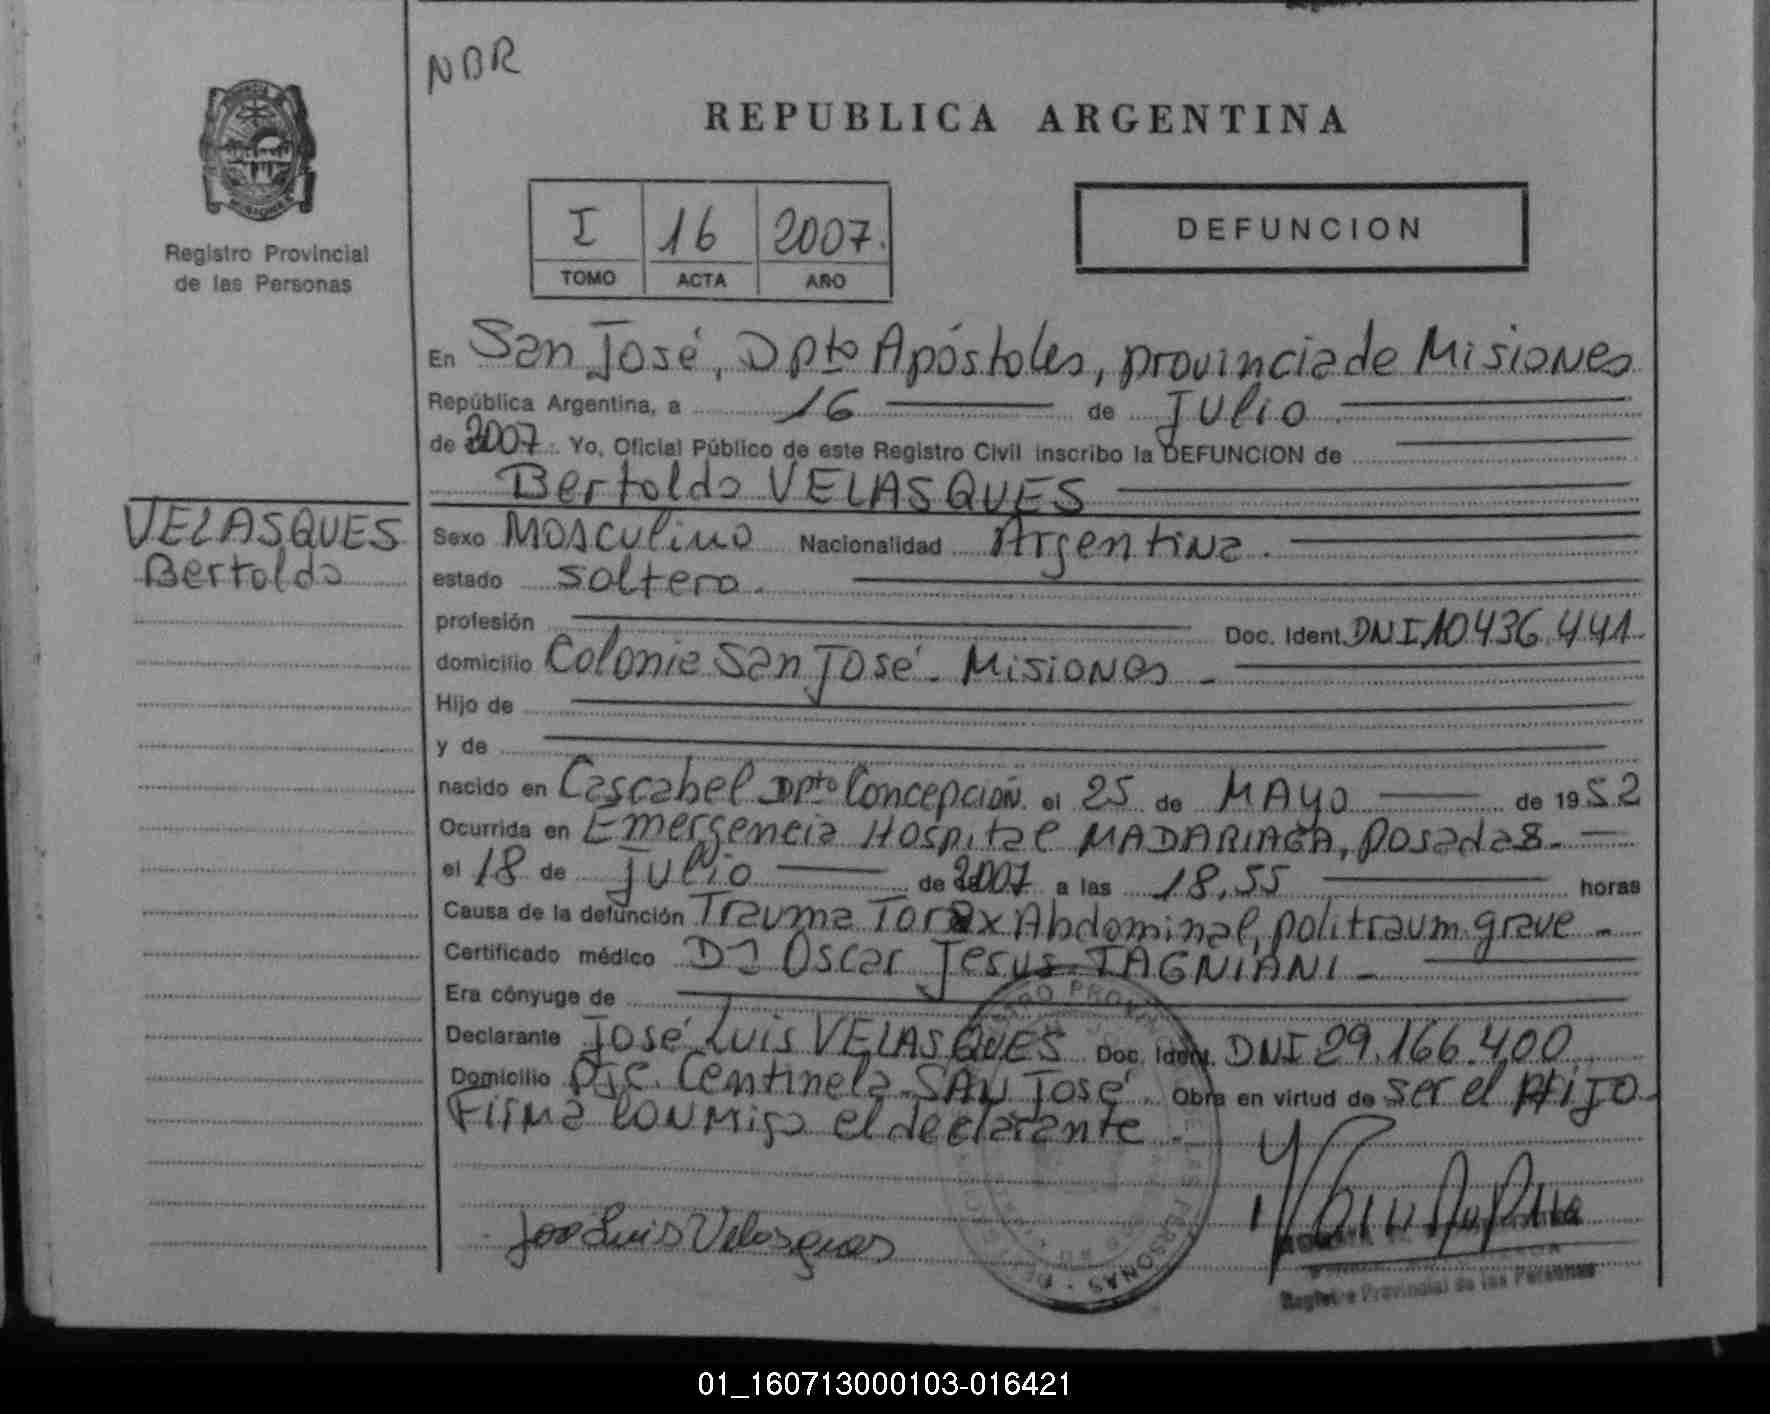 NBR
REPUBLICA ARGENTINA
Registro Provincial
de las Personas
I 16 2007.
TOMO ACTA AÑO
DEFUNCION
En San José, Dpto Apóstoles, provincia de Misiones
República Argentina, a 16 de Julio
de 2007. Yo, Oficial Público de este Registro Civil inscribo la DEFUNCION de
Bertoldo VELASQUES
VELASQUES
Bertoldo
Sexo Masculino Nacionalidad Argentina.
estado soltero.
profesión Doc. Ident. DNI 10.436.441.
domicilio Colonia San José. Misiones -
Hijo de
y de
nacido en Cascabel Dpto Concepción. el 25 de MAYO de 1952
Ocurrida en Emergencia Hospital MADARIAGA, Posadas.
el 18 de Julio de 2007 a las 18,55 horas
Causa de la defunción Trauma Torax Abdominal, politraum. grave -
Certificado médico Dr Oscar Jesus TAGNIANI -
Era cónyuge de
Declarante José Luis VELASQUES Doc. Ident. DNI 29.166.400
Domicilio Pje. Centinela SAN José. Obra en virtud de ser el HIJO-
Firma conmigo el declarante.
José Luis Velasques
Registro Provincial de las Personas
01_160713000103-016421